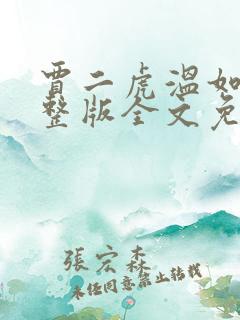 賈二虎溫如
整版全文免
張宏森
未经同意禁止转载